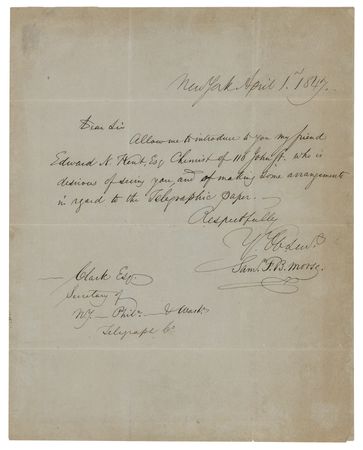 New York April 1. 1847.
Dear Sir
Allow me to introduce to you my friend
Edward N. Kent, Esq Chemist of 116 John St. who is
desirous of seeing you, and of making some arrangements
in regard to the Telegraphic paper.
Respectfully
Yr. Ob. Servt.
Saml. F. B. Morse.
Clark Esq
Secretary of
N.Y. — Phila. — & Wash.
Telegraph Co.